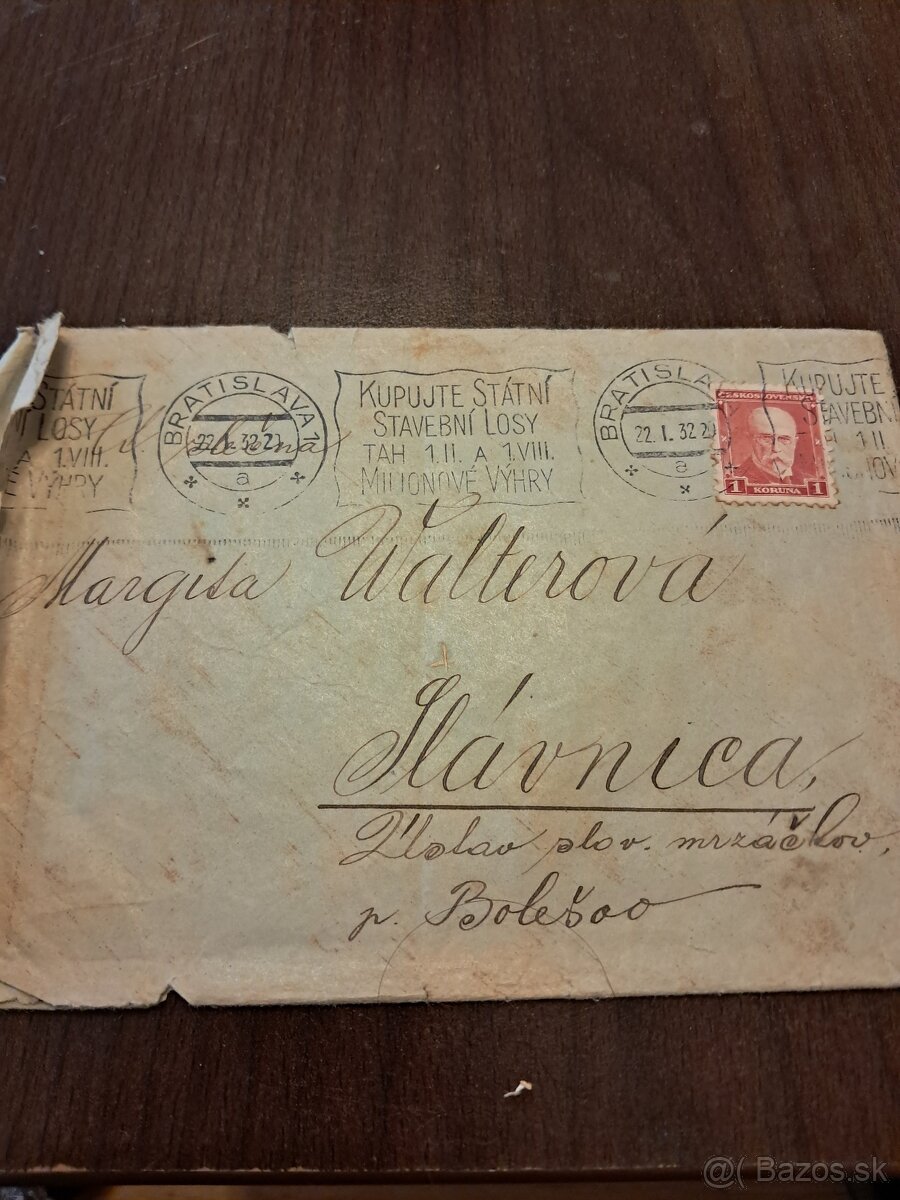 STÁTNÍ
LOSY
A 1.VIII.
VÝHRY
BRATISLAVA 1
22.I.32.21
a
KUPUJTE STÁTNÍ
STAVEBNÍ LOSY
TAH 1.II. A 1.VIII.
MILIONOVÉ VÝHRY
BRATISLAVA
22.I.32
a
KUPUJTE
STAVEBNÍ
1.II
ČESKOSLOVENSKO
1 KORUNA 1
Margita Walterová
Slávnica,
Ústav slov. mrzáčkov,
p. Bolešov
@( Bazos.sk